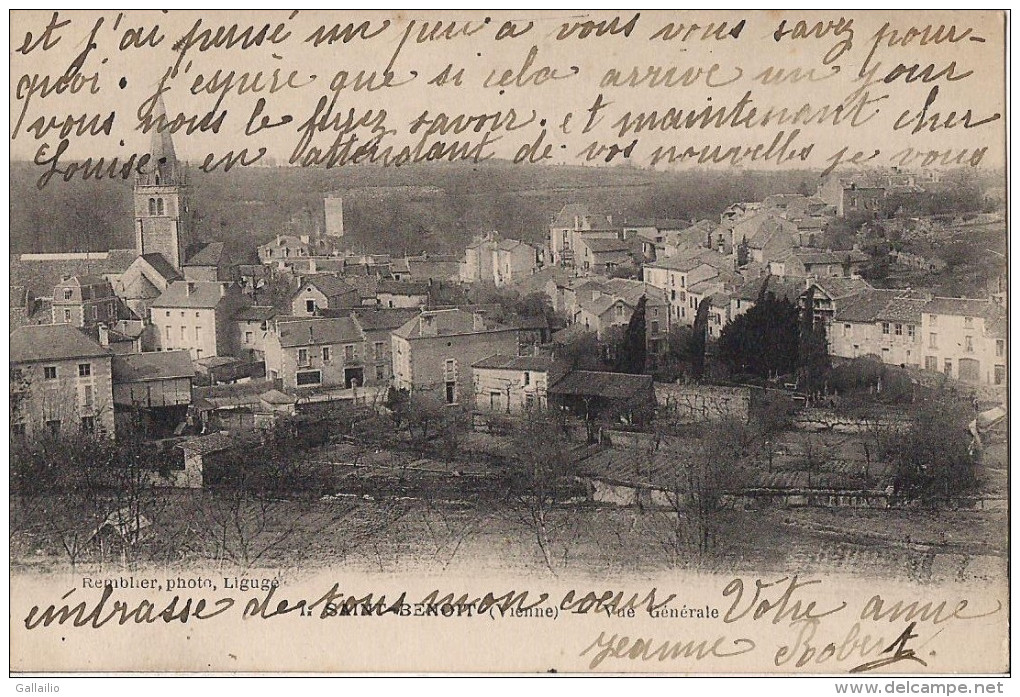 et j'ai pensé un peu a vous vous savez pour-
quoi. j'espère que si cela arrive un jour
vous nous le ferez savoir. et maintenant cher
Louise en attendant de vos nouvelles je vous
Remblier, photo, Ligugé
embrasse de tous mon coeur Votre amie
1. SAINT-BENOIT (Vienne) - Vue Générale
Jeanne Robert.
Gallailio
www.delcampe.net